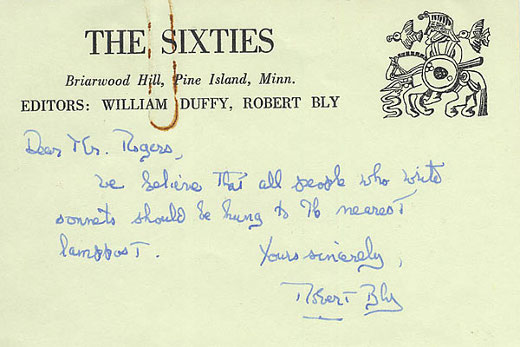 THE SIXTIES
Briarwood Hill, Pine Island, Minn.
EDITORS: WILLIAM DUFFY, ROBERT BLY
Dear Mr. Rogers,
We believe that all people who write
sonnets should be hung to the nearest
lamppost.
Yours sincerely,
Robert Bly